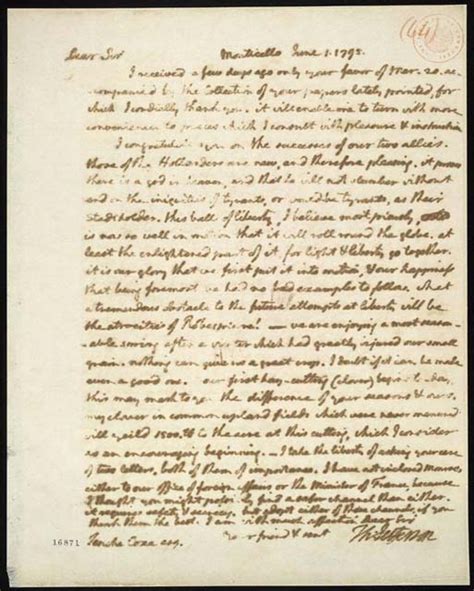 (44)
Dear Sir Monticello June 1. 1795.
I received a few days ago only your favor of Mar. 20. ac-
companied by the Collection of your papers lately printed, for
which I cordially thank you. it will enable me to turn with more
convenience to pieces which I consult with pleasure & instruction
I congratulate you on the successes of our two allies.
those of the Hollanders are new, and therefore pleasing. it proves
there is a god in heaven, and that he will not slumber without
end on the iniquities of tyrants, or would be tyrants, as their
Stadtholder. this ball of liberty, I believe most piously,
is now so well in motion that it will roll round the globe. at
least the enlightened part of it. for light & liberty go together.
it is our glory that we first put it into motion, & our happiness
that being foremost we had no bad examples to follow. what
a tremendous obstacle to the future attempts at liberty will be
the atrocities of Robespierre! — we are enjoying a most season-
able spring after a winter which had greatly injured our small
grain. nothing can give us a great crop. I doubt if it can be made
even a good one. our first hay-cutting (clover) begins to-day,
this may mark to you the difference of your seasons & ours.
my clover in common upland fields which were never manured
will yield 1500. to the acre at this cutting, which I consider
as an encouraging beginning. — I take the liberty of asking your care
of two letters, both of them of importance. I have not inclosed them
either to our office of foreign affairs or the Minister of France, because
I thought you might possibly find a safer channel than either.
it requires safety & secrecy. but adopt either of those channels, if you
think them the best. I am with much affection Dear Sir
Your friend & servt
Tenche Coxe esq. Th: Jefferson
16871